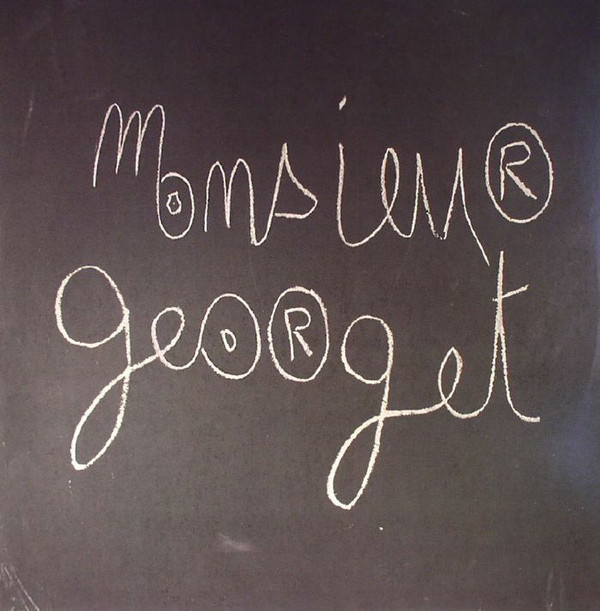 monsieu®
geo®get